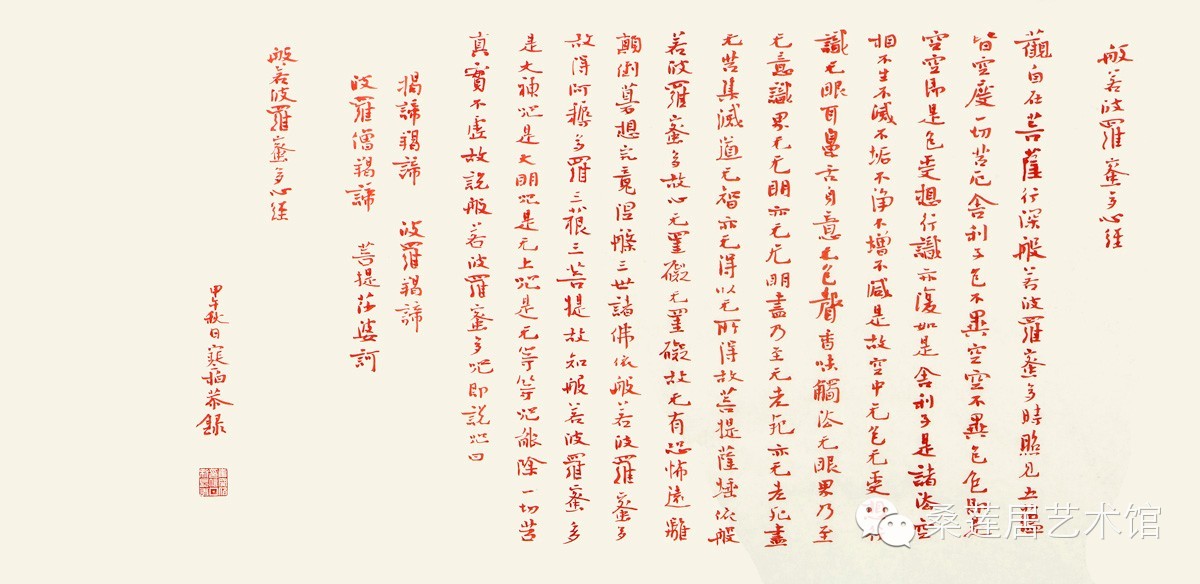 般若波羅蜜多心經
觀自在菩薩行深般若波羅蜜多時照見五蘊
皆空度一切苦厄舍利子色不異空空不異色色即是
空空即是色受想行識亦復如是舍利子是諸法空
相不生不滅不垢不淨不增不減是故空中无色无受行
識无眼耳鼻舌身意无色聲香味觸法无眼界乃至
无意識界无无明亦无无明盡乃至无老死亦无老死盡
无苦集滅道无智亦无得以无所得故菩提薩埵依般
若波羅蜜多故心无罣礙无罣礙故无有恐怖遠離
顛倒夢想究竟涅槃三世諸佛依般若波羅蜜多
故得阿耨多羅三藐三菩提故知般若波羅蜜多
是大神咒是大明咒是无上咒是无等等咒能除一切苦
真實不虛故說般若波羅蜜多咒即說咒曰
揭諦揭諦 波羅揭諦
波羅僧揭諦 菩提莎婆訶
般若波羅蜜多心經
甲午秋日寒柏恭錄
桑莲居艺术馆